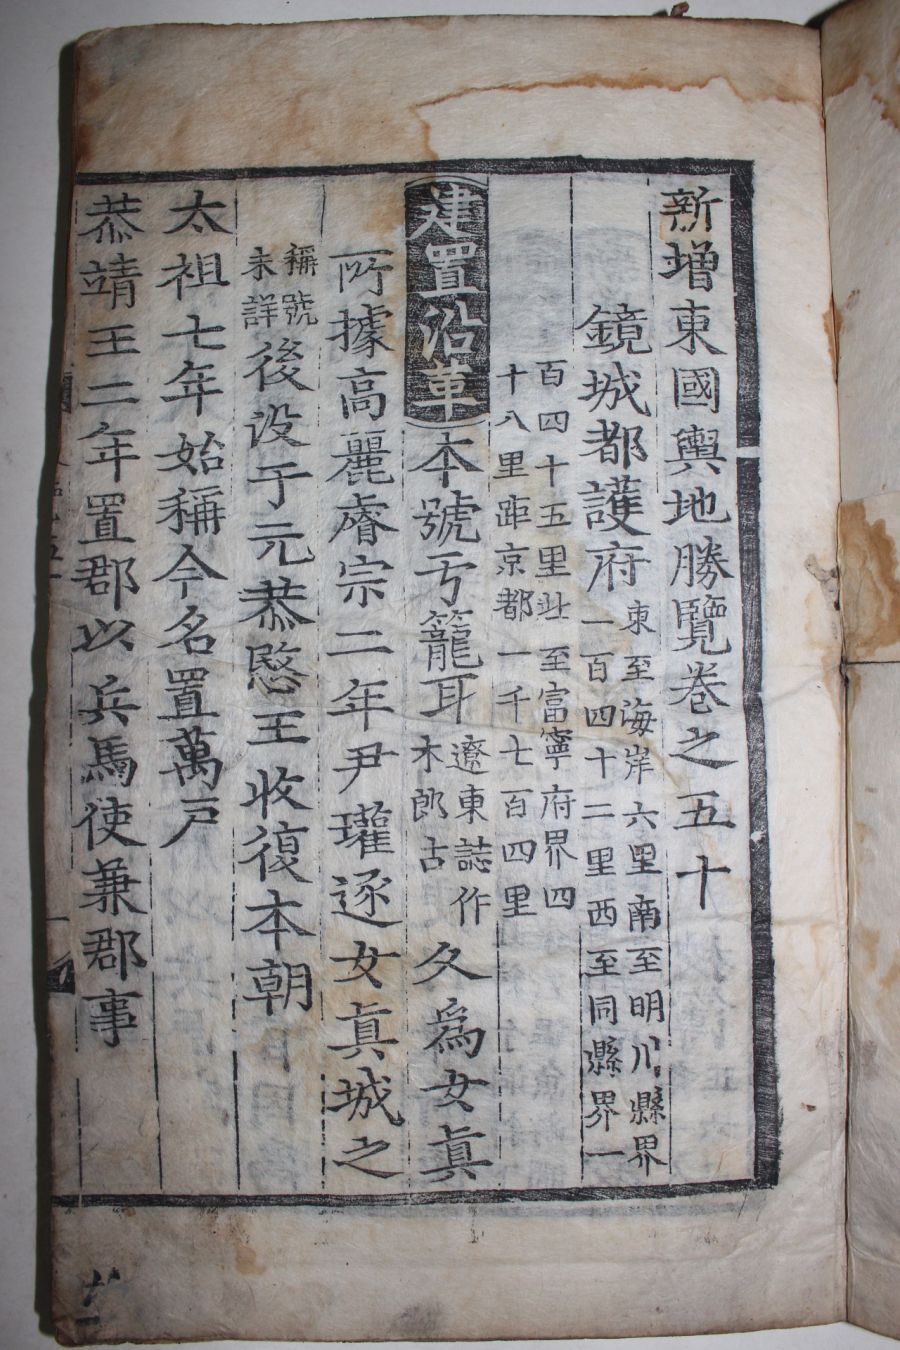 新增東國輿地勝覽卷之五十
鏡城都護府東至海岸六里南至明川縣界
一百四十二里西至同縣界一
百四十五里北至富寧府界四
十八里距京都一千七百四里
建置沿革本號亐籠耳遼東誌作
木郎古久爲女眞
所據高麗睿宗二年尹瓘逐女眞城之
稱號
未詳後没于元恭愍王收復本朝
太祖七年始稱今名置萬戶
恭靖王二年置郡以兵馬使兼郡事